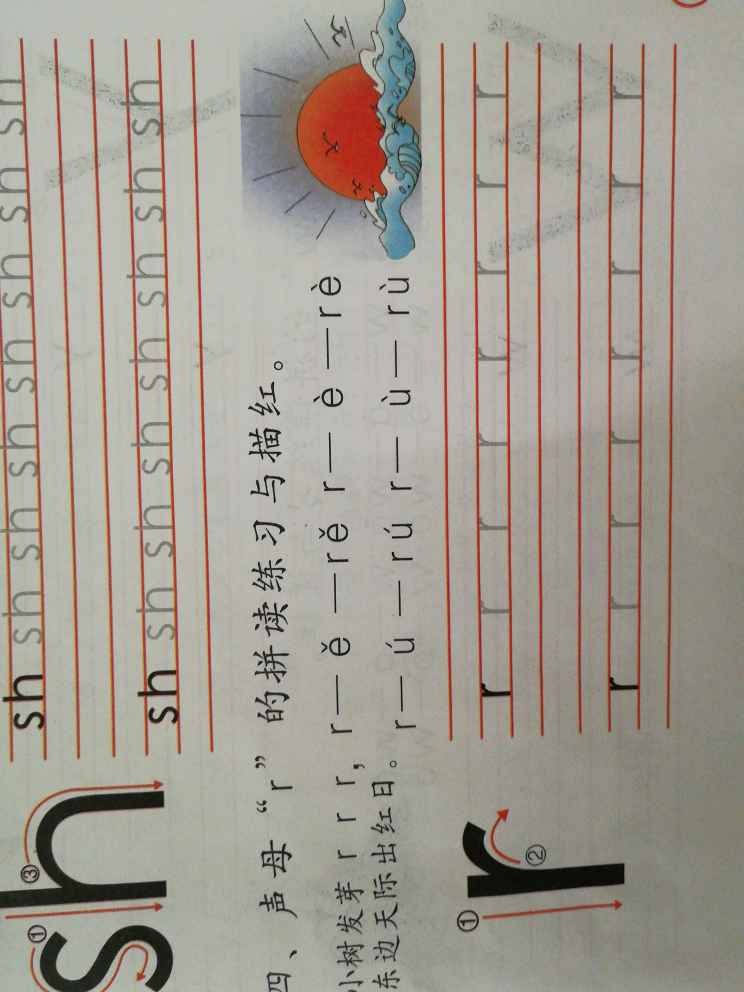 sh sh sh sh sh sh sh sh
① ③
sh
sh sh sh sh sh sh sh sh
四、声母“r”的拼读练习与描红。
小树发芽 r r r， r—ě—rě r—è—rè
东边天际出红日。 r—ú—rú r—ù—rù
① ②
r
r r r r r r r r
r r r r r r r r